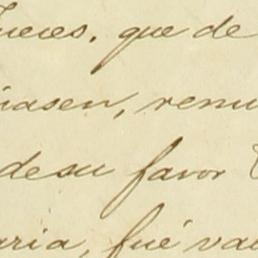 Jueces, que de
iasen, renu
de su favor
aria, fué va